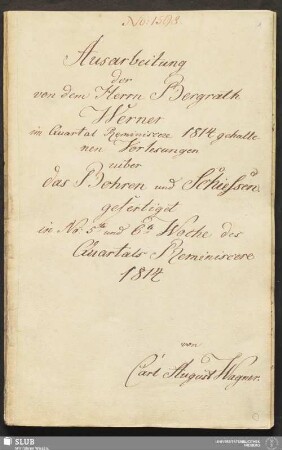 No 1598.
Ausarbeitung
der
von dem Herrn Bergrath
Werner
im Quartal Reminiscere 1814 gehalte
nen Vorlesungen
über
das Bohren und Schiessen
gefertigt
in Nr. 5te und 6te Woche des
Quartals Reminiscere
1814
von
Carl August Wagner.
SLUB
Wir führen Wissen.